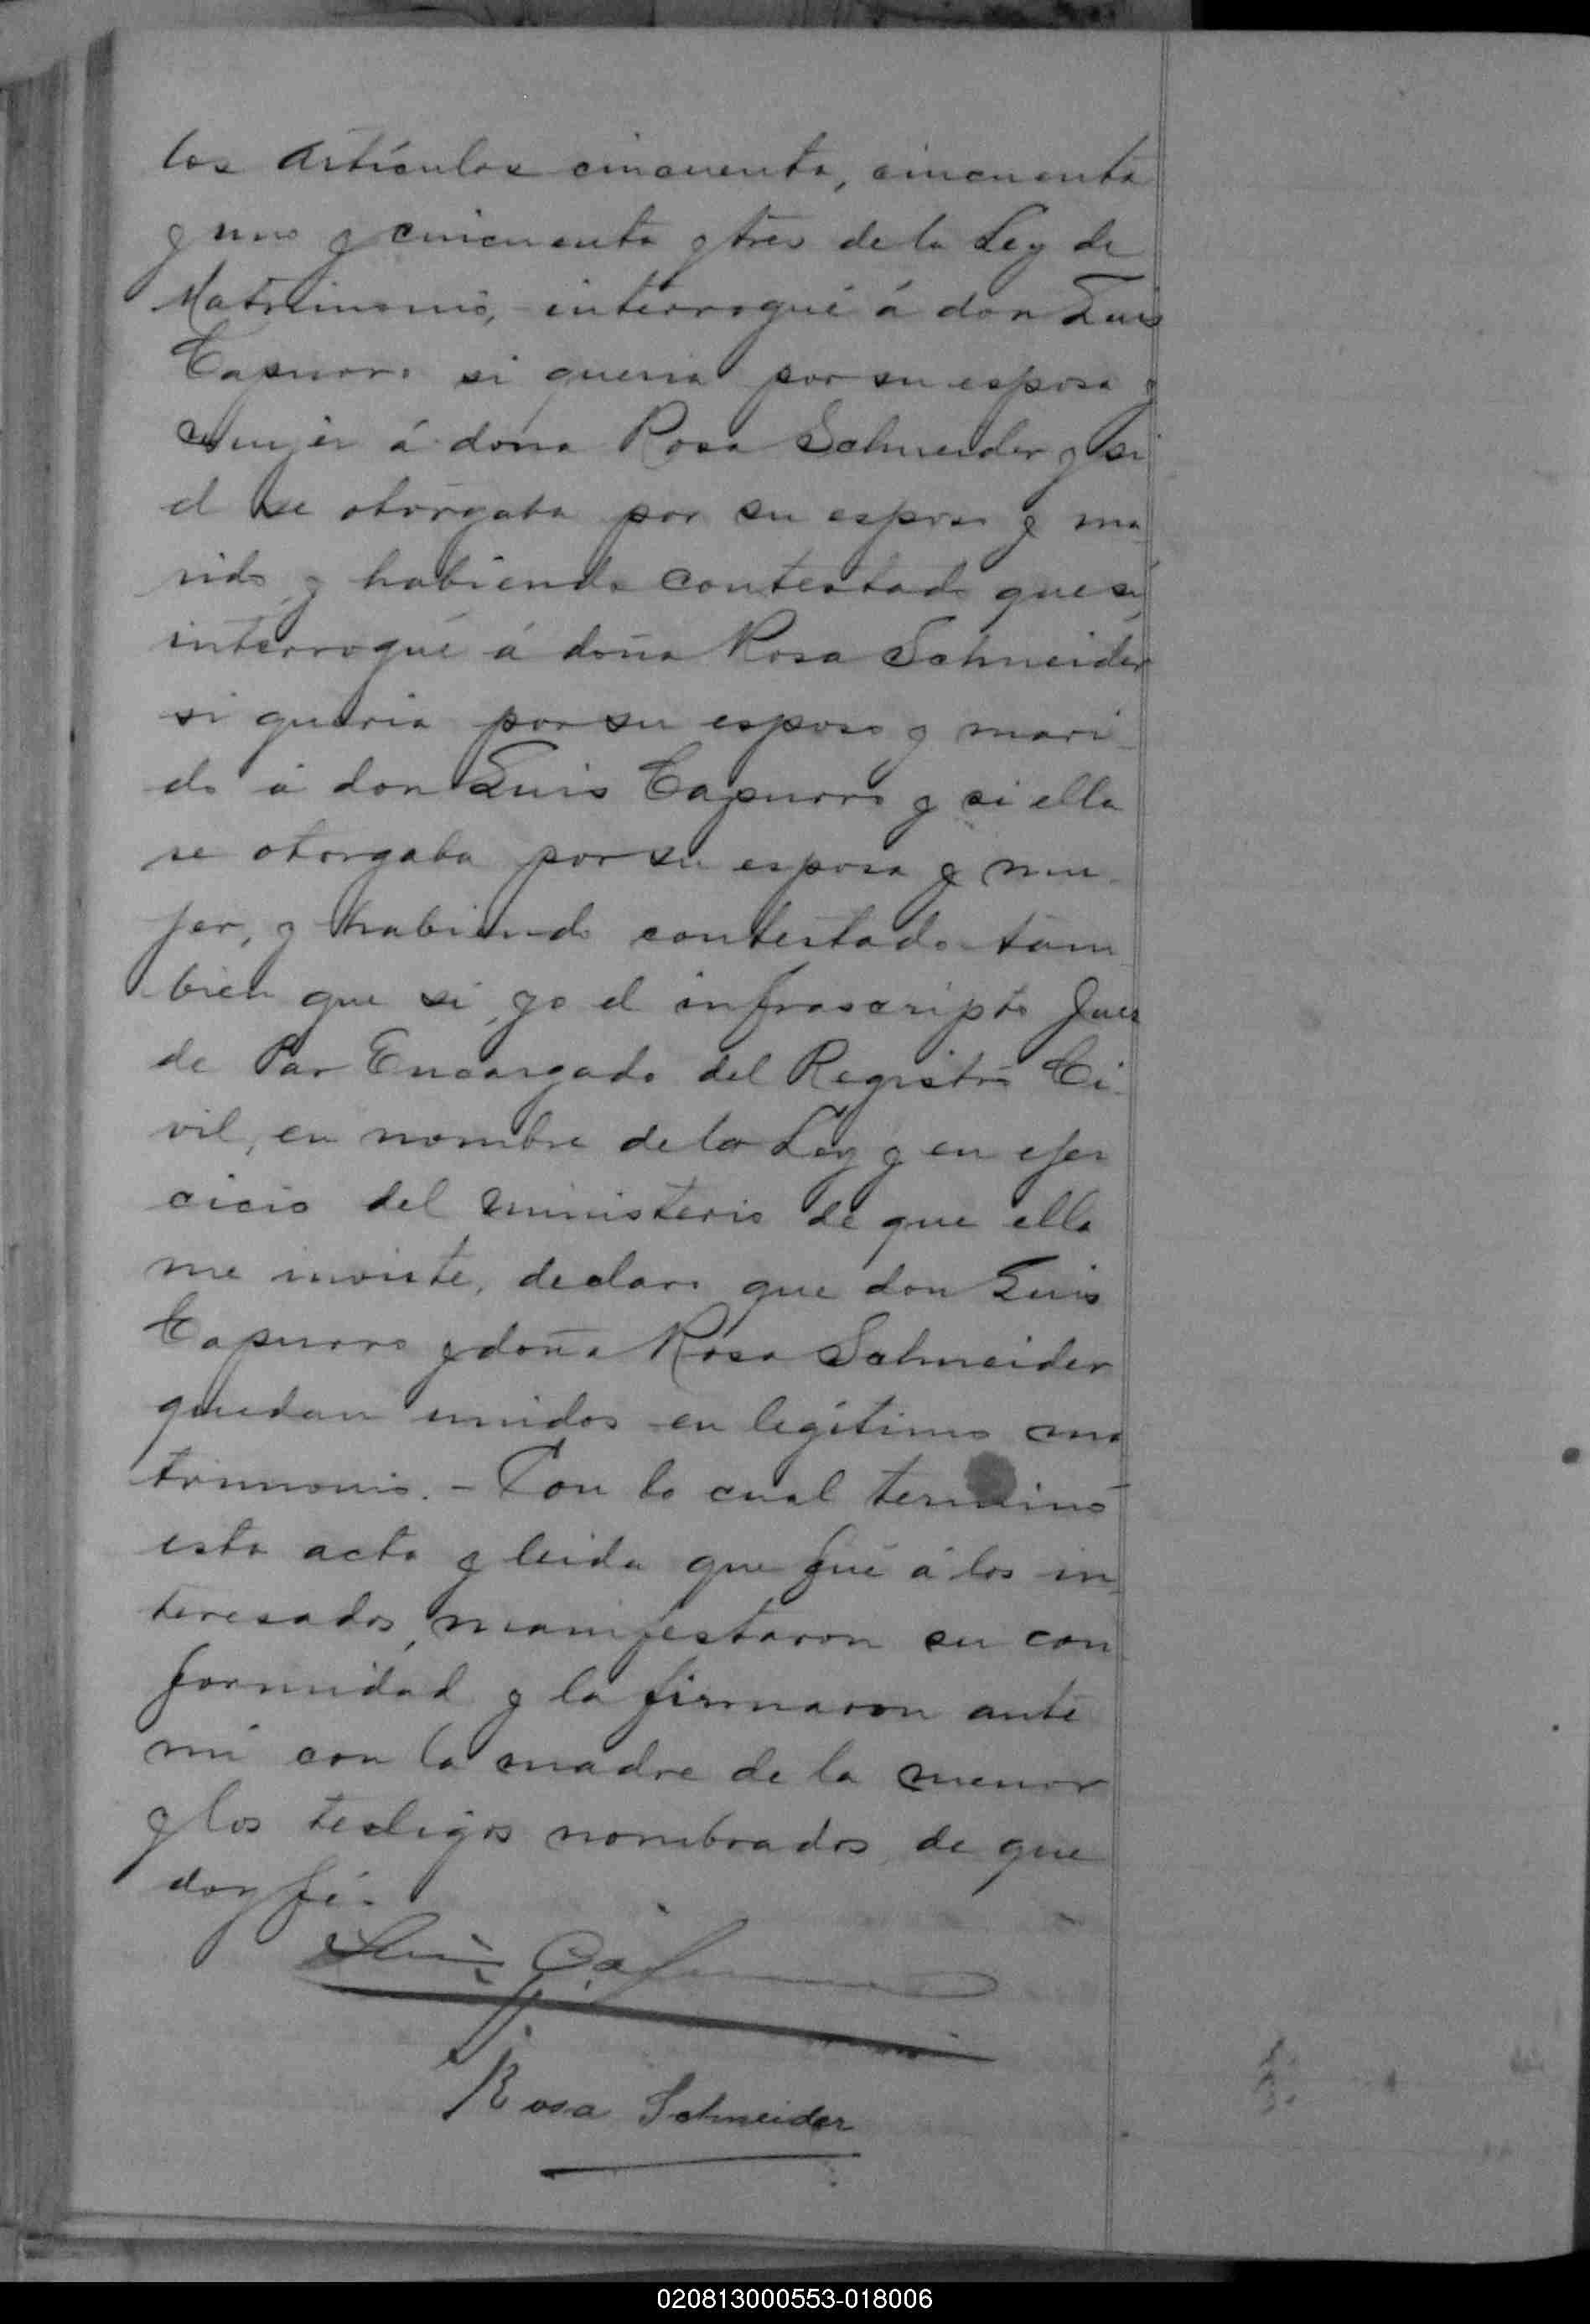 los Artículos cincuenta, cincuenta
y uno y cincuenta y tres de la Ley de
Matrimonio, interrogué á don Luis
Capurro si queria por su esposa y
mujer á doña Rosa Schneider y si
el se otorgaba por su esposo y ma
rido, y habiendo contestado que si,
interrogué á doña Rosa Schneider
si queria por su esposo y mari-
do á don Luis Capurro y si ella
se otorgaba por su esposa y mu-
jer, y habiendo contestado tam
bien que si, yo el infrascripto Juez
de Paz Encargado del Registro Ci-
vil, en nombre de la Ley y en ejer
cicio del ministerio de que ella
me inviste, declaro que don Luis
Capurro y doña Rosa Schneider
quedan unidos en legítimo ma
trimonio. - Con lo cual terminó
esta acta y leida que fué á los in
teresados, manifestaron su con
formidad y la firmaron ante
mi con la madre de la menor
y los testigos nombrados, de que
doy fé.-
Luis Capurro
Rosa Schneider
020813000553-018006